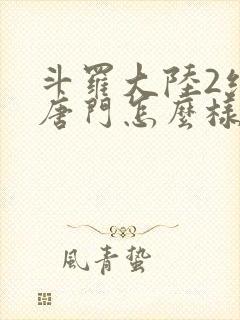 斗羅大陸2
唐門怎麼樣
風青蟄